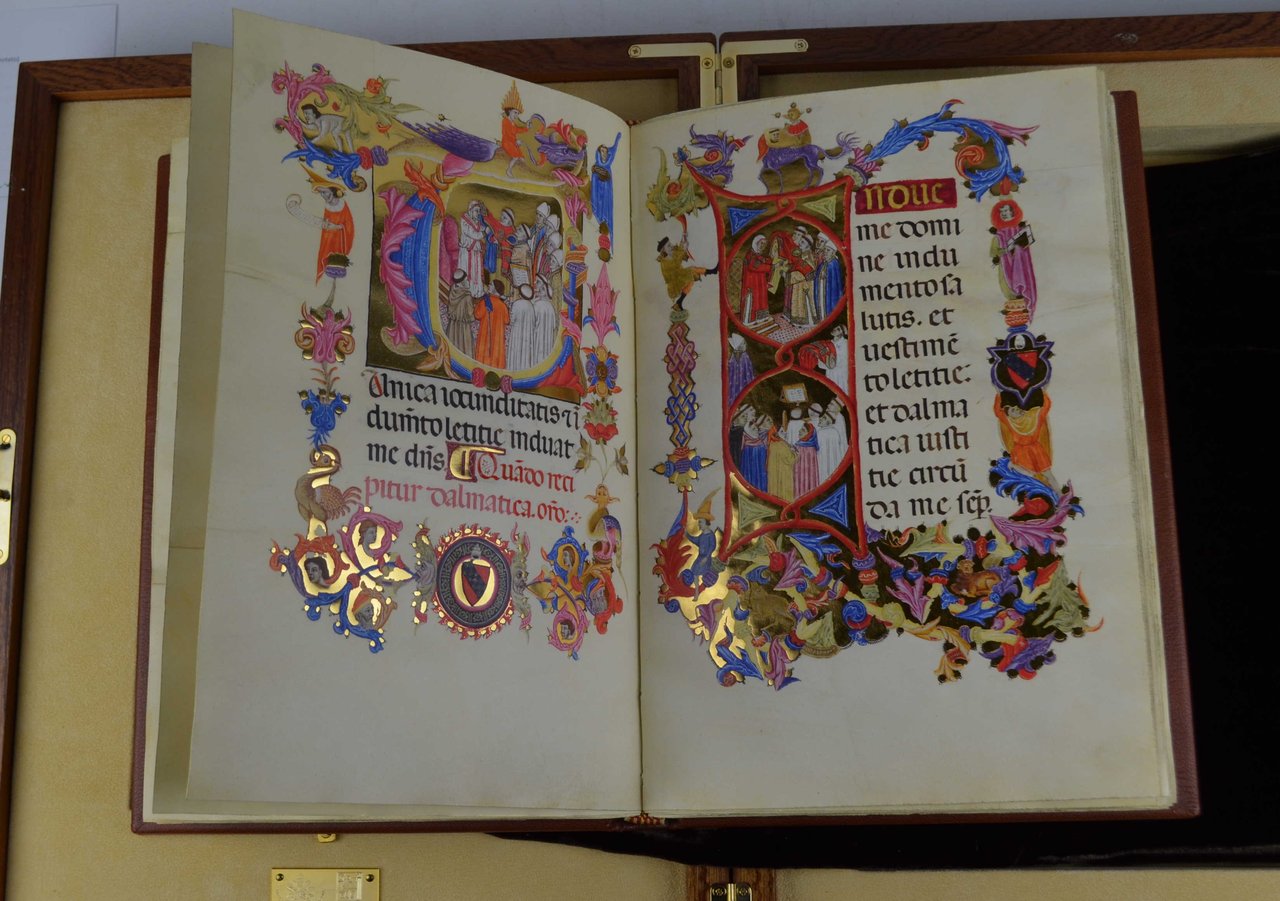 Tunica iocunditatis ⁊ ī
dum̄to letitie induat
me dn̄s. Quādo reci
pitur dalmatica. or̄o:
Nduc
me domi
ne indu
mento sa
lutis. et
uestimē
to letitie:
et dalma
tica iusti
tie circū
da me sep̄.